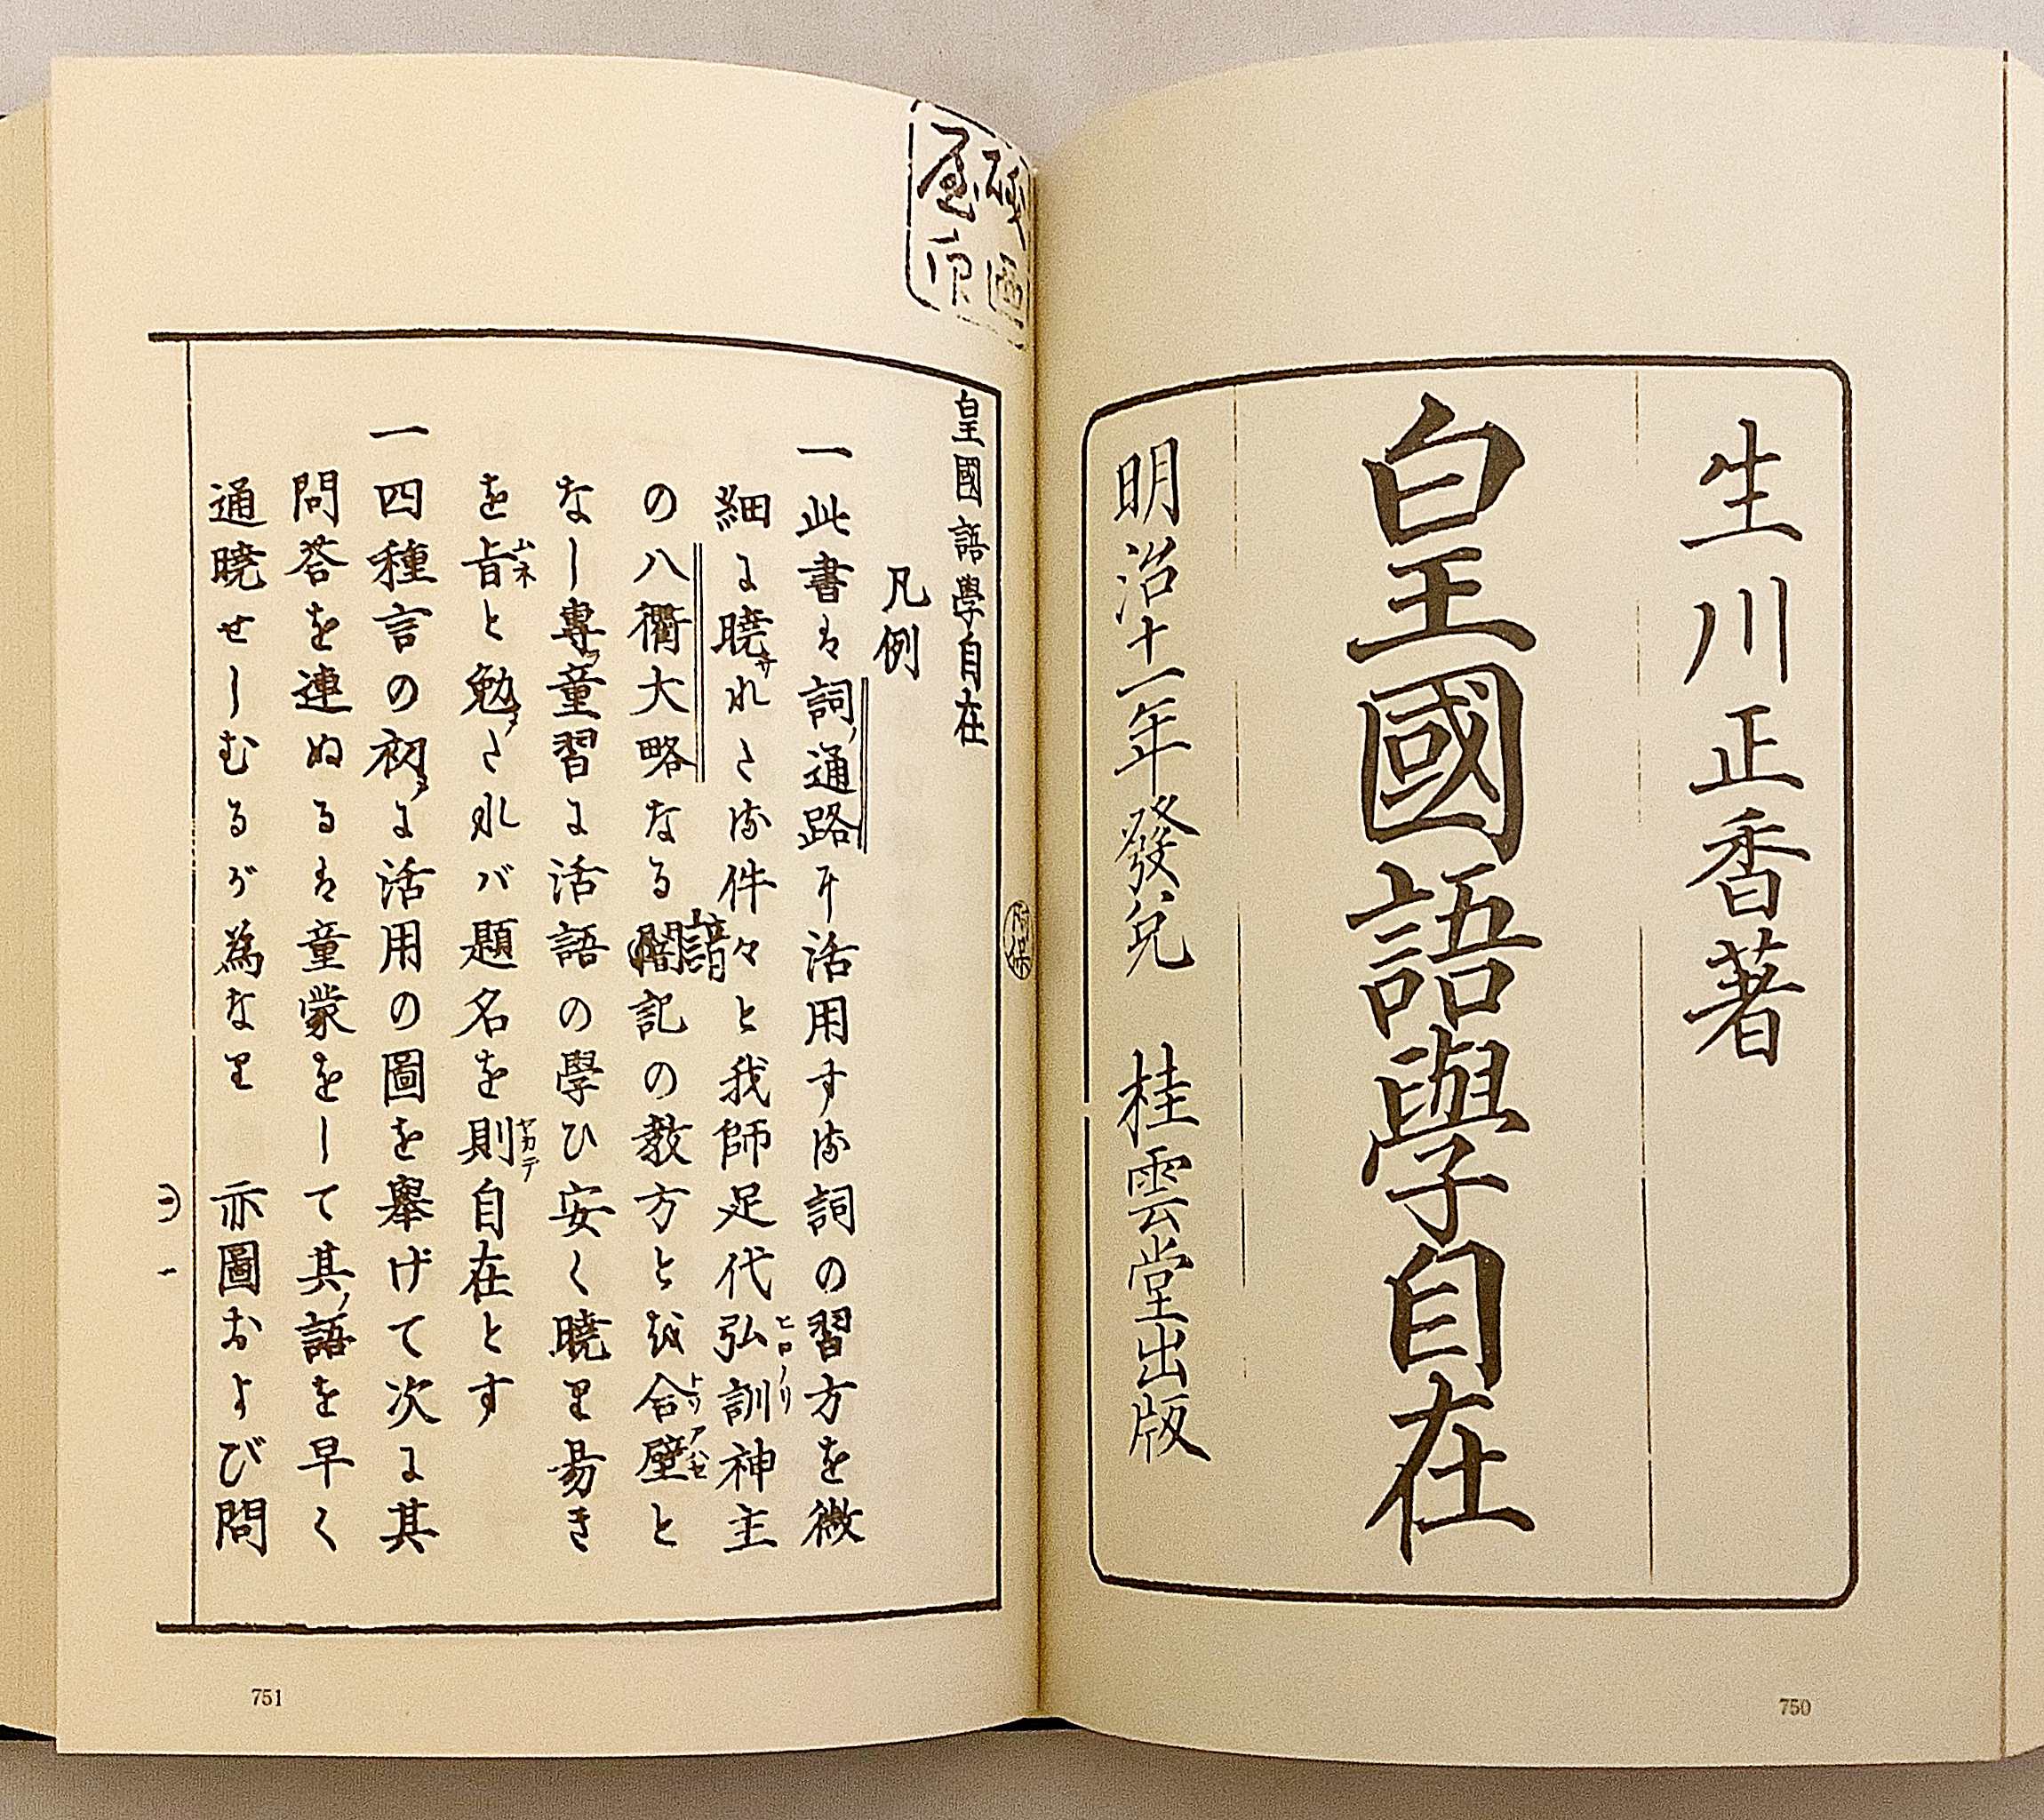 生川正香著
皇國語學自在
明治十一年發兌　桂雲堂出版
750
皇國語學自在
凡例
一此書ハ詞ノ通路ヲ活用する詞の習方を微
細に曉サれたる件々と我師足代弘訓ヒロノリ神主
の八衢大略なる闇諳記の教方とを合壁トリアハセと
なし專ラ童習に活語の學ひ安く曉り易き
を旨ムネと勉メたれバ題名を則ヤカデ自在とす
一四種言の初メに活用の圖を舉げて次に其
問荅を連ぬるハ童蒙をして其ノ語を早く
通曉せしむるが為なり　亦圖および問
ヨ一
751